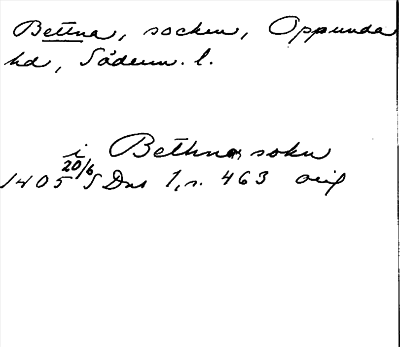 Bettna, socken, Oppunda
hd, Söderm. l.
i Bethna sokn
1405 20/6 SDns 1, s. 463 orig